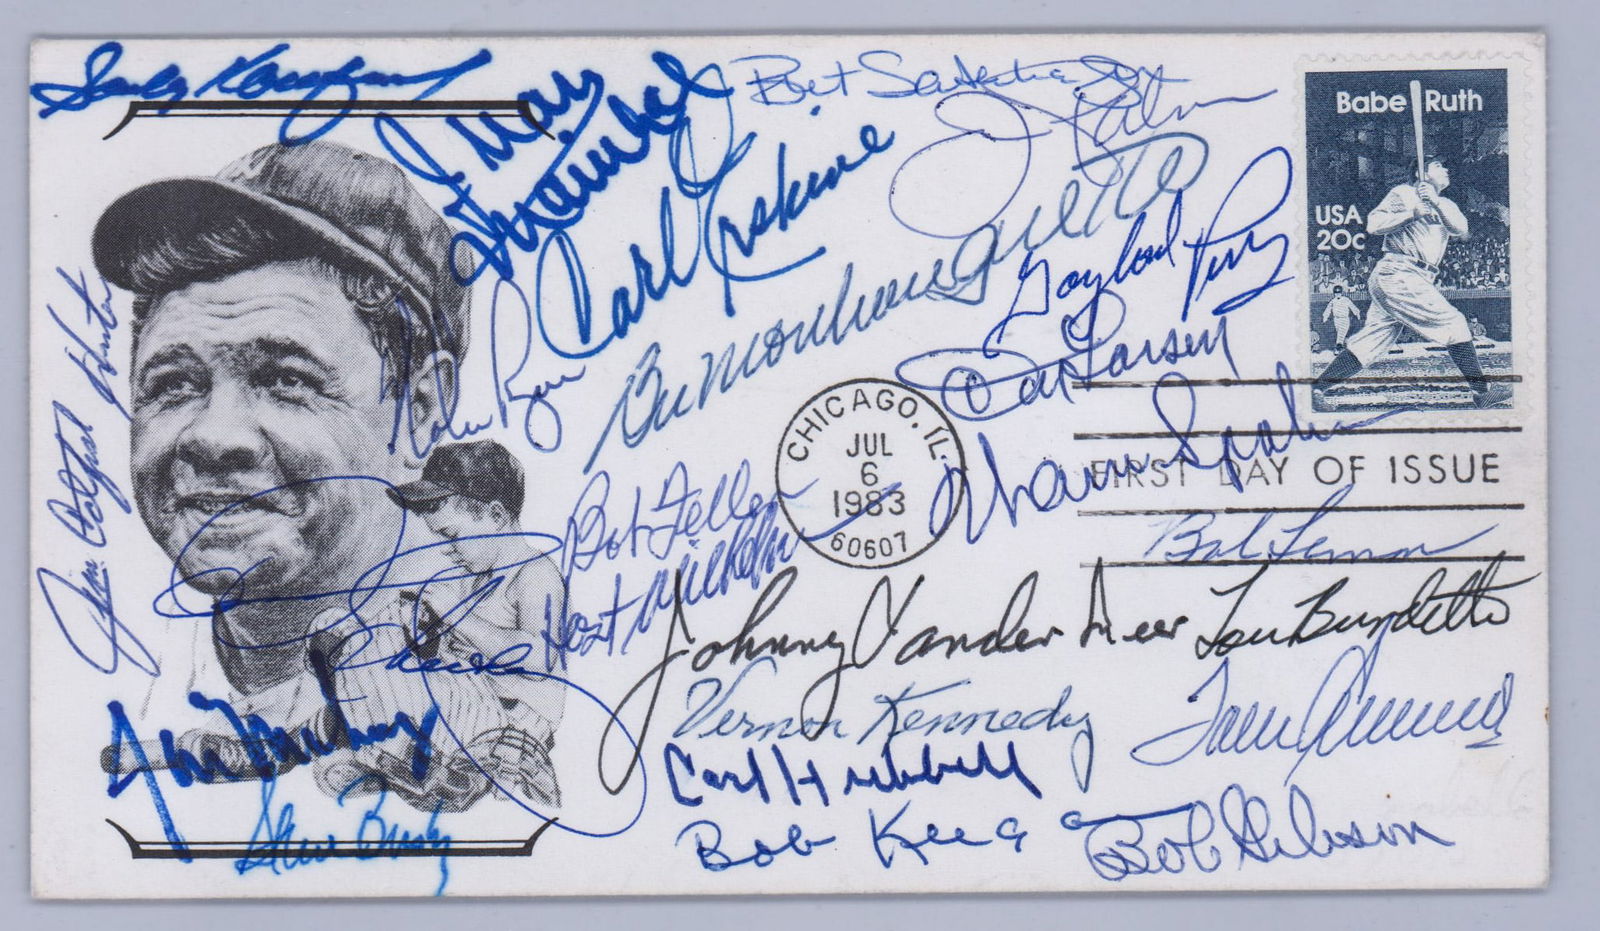 Sandy Koufax
Bret Saberhagen
J. Palmer
Juan Marichal
Carl Erskine
Babe Ruth
USA
20c
Gaylord Perry
Bill Monbouquette
Nolan Ryan
Don Larsen
Warren Spahn
CHICAGO, IL
JUL
6
1983
60607
FIRST DAY OF ISSUE
Jim Catfish Hunter
Bob Feller
Hoyt Wilhelm
Bob Lemon
Johnny Vander Meer
Lou Burdette
Vernon Kennedy
Tom Seaver
Jim Bunning
Carl Hubbell
Steve Busby
Bob Keegan
Bob Gibson